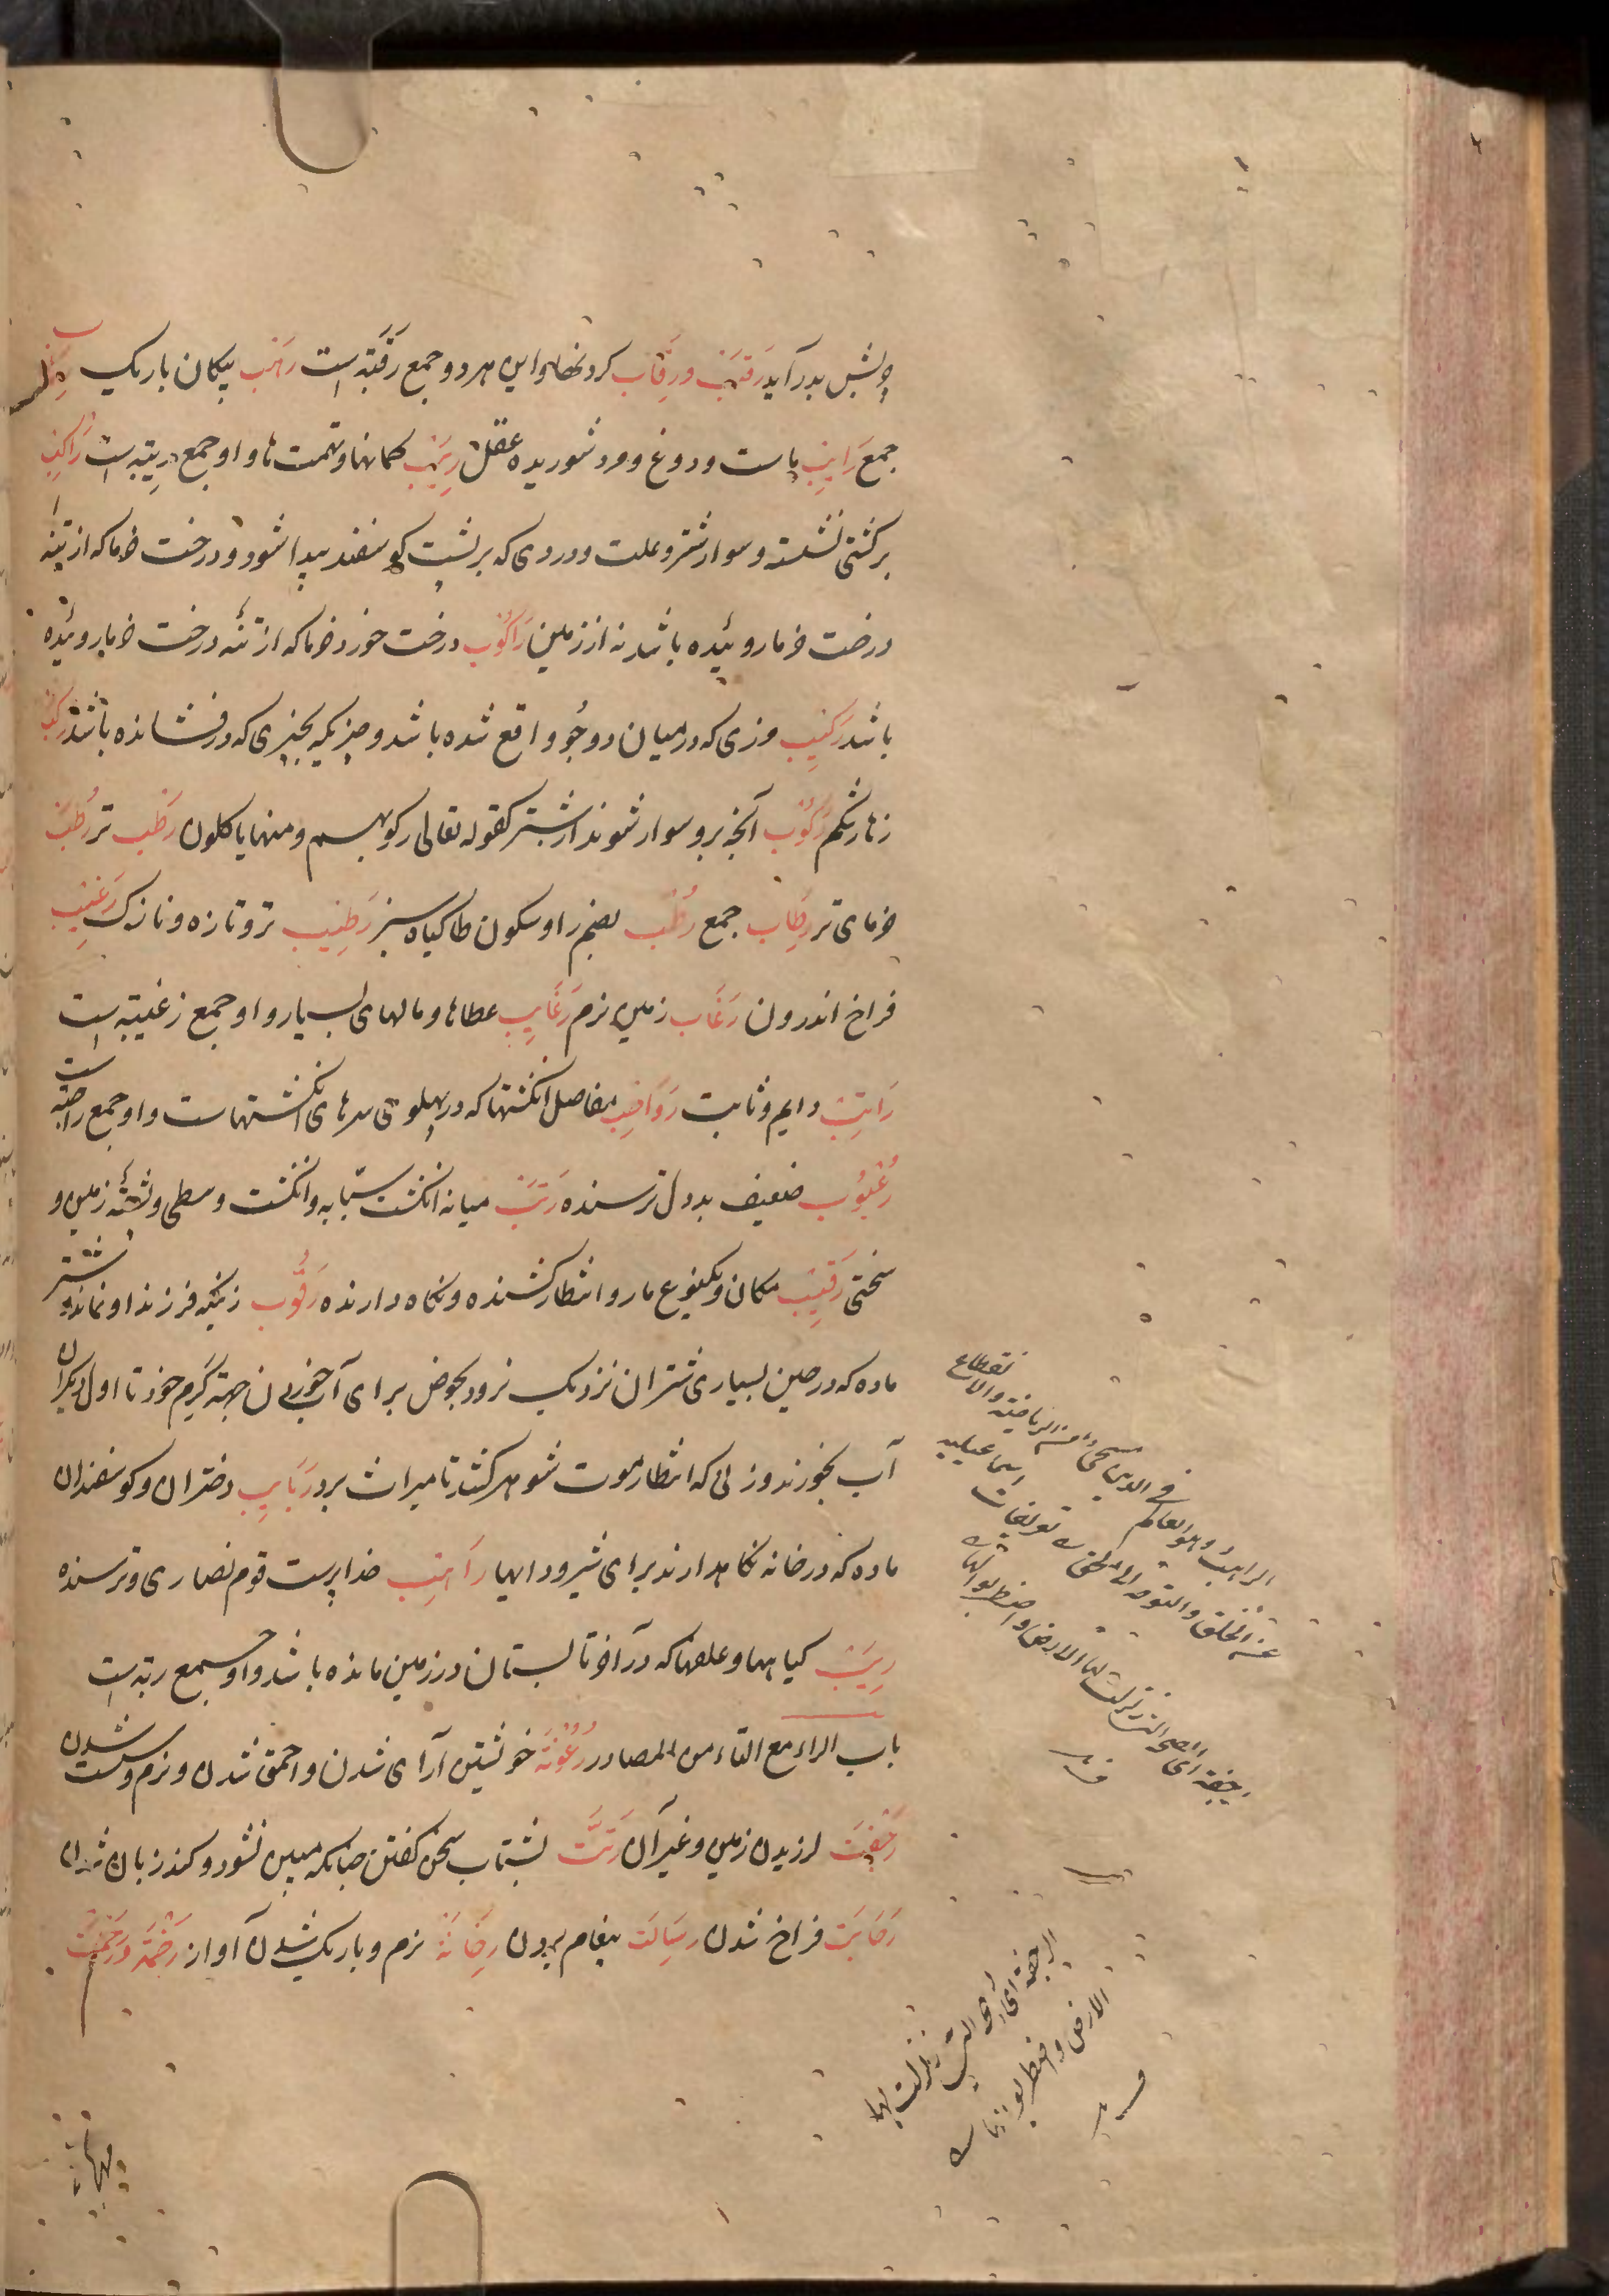 پیش بدر آید رَقَبَ و رِقَاب کردنها و این هر دو جمع رَقَبَة است رَهَب پیکان باریک
جمع رَایِب ماست و دوغ و مرد شوریده عقل رِیَب گمانها و تهمت ها و او جمع رِیبَة است رَاکِب
بر کشتی نشسته و سوار شتر و علت و دردی که بر پشت گوسفند پیدا شود و درخت خرما که از تنه
درخت خرما روئیده باشد نه از زمین رَاکُوب درخت خورد خرما که از تنهٔ درخت خرما روئیده
باشد رَکِیب مرزی که در میان دو جُو واقع شده باشد و چیزیکه بچیزی که درنشانده باشد رَکَب
زهار شکم رَکُوب آنچه برو سوار شوند از شتر کقوله تعالی رکوبهم و منها یاکلون رَطب تر رُطَب
خرمای تر رِطَاب جمع رُطْب بضم را و سکون طا کیاه سبز رَطِیب تر و تازه و نازک رَغِیب
فراخ اندرون رَغَاب زمین نرم رَغَایِب عطاها و مالهای بسیار و او جمع رغیبه است
رَاتِب دایم و ثابت رَوَاجِب مفاصل انکشتها که در پهلوی سرهای انکشتهاست و او جمع راجبه است
رُعْبُوب ضعیف بددل ترسنده رَتَب میانه انکشت سبّابه و انکشت وسطی و پشتهٔ زمین و
سختی رَقِیب مکان و یکنوع مار و انتظار کشنده و نکاه دارنده رَقُوب زنیکه فرزند او نماند و شتر
ماده که در حین بسیاری شتران نزدیک نرود بحوض برای آبخوردن جهة کرم خود تا اول دیکران
آب بخورند و زنی که انتظار موت شوهر کشد تا میراث برد رَبَایِب دختران و کوسفندان
ماده که در خانه نکاهدارند برای شیر و دایها رَاهِب خداپرست قوم نصاری و ترسنده
رِبَب کیاهها و علفها که در آخر تابستان در زمین مانده باشد و او جمع ربه است
باب الراء مع التاء من المصادر رُعُونَة خویشتن آرای شدن و احمق شدن و نرم و سست شدن
رَجْفَت لرزیدن زمین و غیر آن رَتَّت بشتاب سخن کفتن چنانکه مبین نشود و کند زبان شدن
رَحَابَت فراخ شدن رِسَالَت پیغام بردن رَخَانَة نرم و باریک شدن آواز رَخْمَة و رَخَمَت
الراهب هو العالم فی الدین المسیحی من الریاضة والانقطاع
عن الخلق والتوجه الی الحق تعریفات
الرجفة ای الصیحة التی زلزلت لها الارض واضطربوا لها
الرجفة ای الصیحة التی زلزلت لها
الارض واضطربوا لها